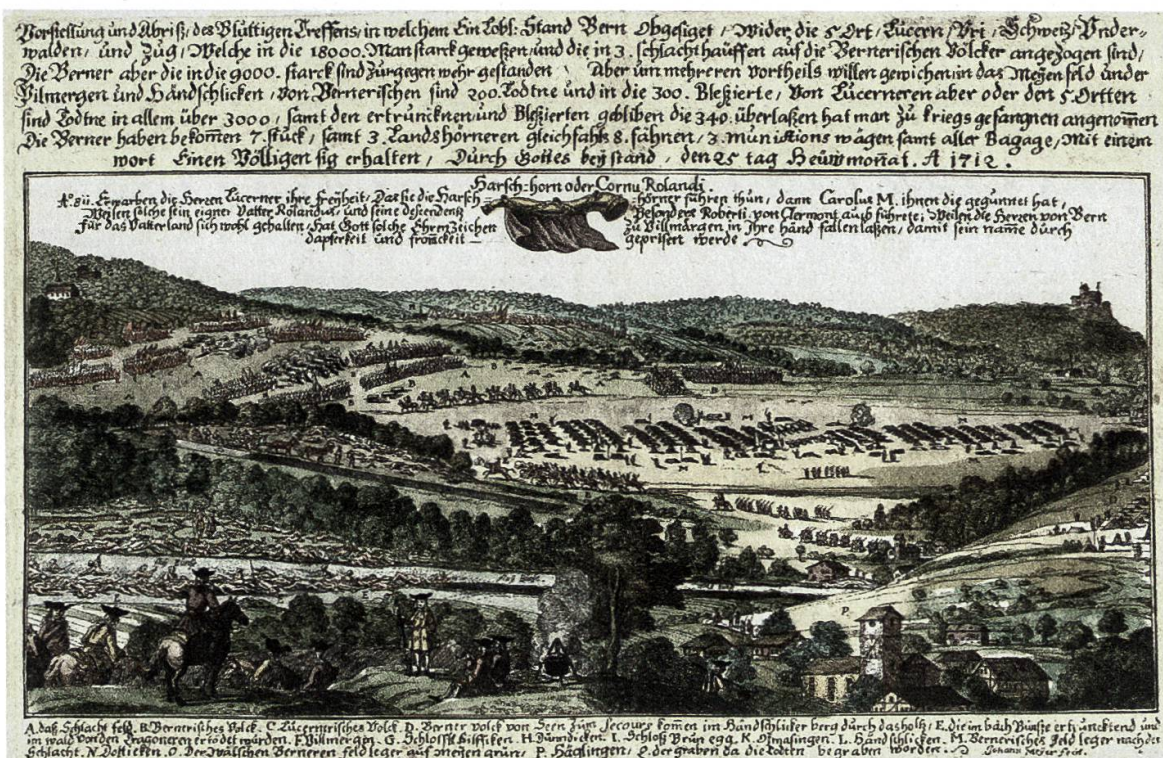 Vorstellung und Abriß, des Bluttigen Treffens, in welchem Ein Lobl: Stand Bern Obgesiget, Wider, die 5 Ort, Lucern, Vri, Schweitz, Vnder-
walden, und Zug, Welche in die 18000. Man starck geweßen, und die in 3. schlachthauffen auf die Bernerischen Völcker angezogen sind,
Die Berner aber die in die 9000. starck sind zur gegen wehr gestanden, Aber um mehreren vortheils willen gewichen in das Meyen feld under
Vilmergen und Händschlicken, von Bernerischen sind 200. Todtne und in die 300. Bleßierte, Von Lucerneren aber oder den 5. Ortten
sind Todtne in allem über 3000, samt den ertruncknen und Bleßierten gebliben die 340. überlaßen hat man zu kriegs gefangnen angenom̄en
Die Berner haben bekom̄en 7. stuck, samt 3. Landshörneren gleichfahls 8. fahnen, 3. munistions wägen samt aller Bagage, Mit einem
wort Einen Völligen sig erhalten, Durch Gottes beystand, den 25 tag Heüwmonat. A 1712.
Harsch-horn oder Cornu Rolandi.
Erwarben die Herren Lucerner ihre freyheit, Das sie die Harsch-hörner führen thun, dann Carolus M. ihnen die gegunnet hat,
Weilen solche sein eigner Vatter Rolandus, und seine descendens Besondere Roberti von Clermont auch führete; Weilen die Herren von Bern
für das Vatterland sich wohl gehalten, Hat Gott solche Ehrenzeichen zu Villmärgen in Ihre händ fallen laßen, damit sein name durch
dapferkeit und from̄ckeit geprisen werde
A B
M
E
P
A. daß Schlacht feld. B. Bernerisches Volck. C. Lucernerisches Volck. D. Berner volck von Seen zum Secours kom̄en im Händschlicker berg durch das holtz, E. die im bach Büntze ertrunckend und
im wald von den Tragoneren ertödet wurden. F. Vilmergen. G. Schloß Hilffiken. H. Dinnticken. I. Schloß Brun egg. K. Otmasingen. L. Händschlicken. M. Bernerisches feld leger nach der
Schlacht. N. Dotticken. O. Der Wältschen Berneren feld leger auf meyen grün, P. Hägglingen, Q. der graben da die Todten begraben worden.